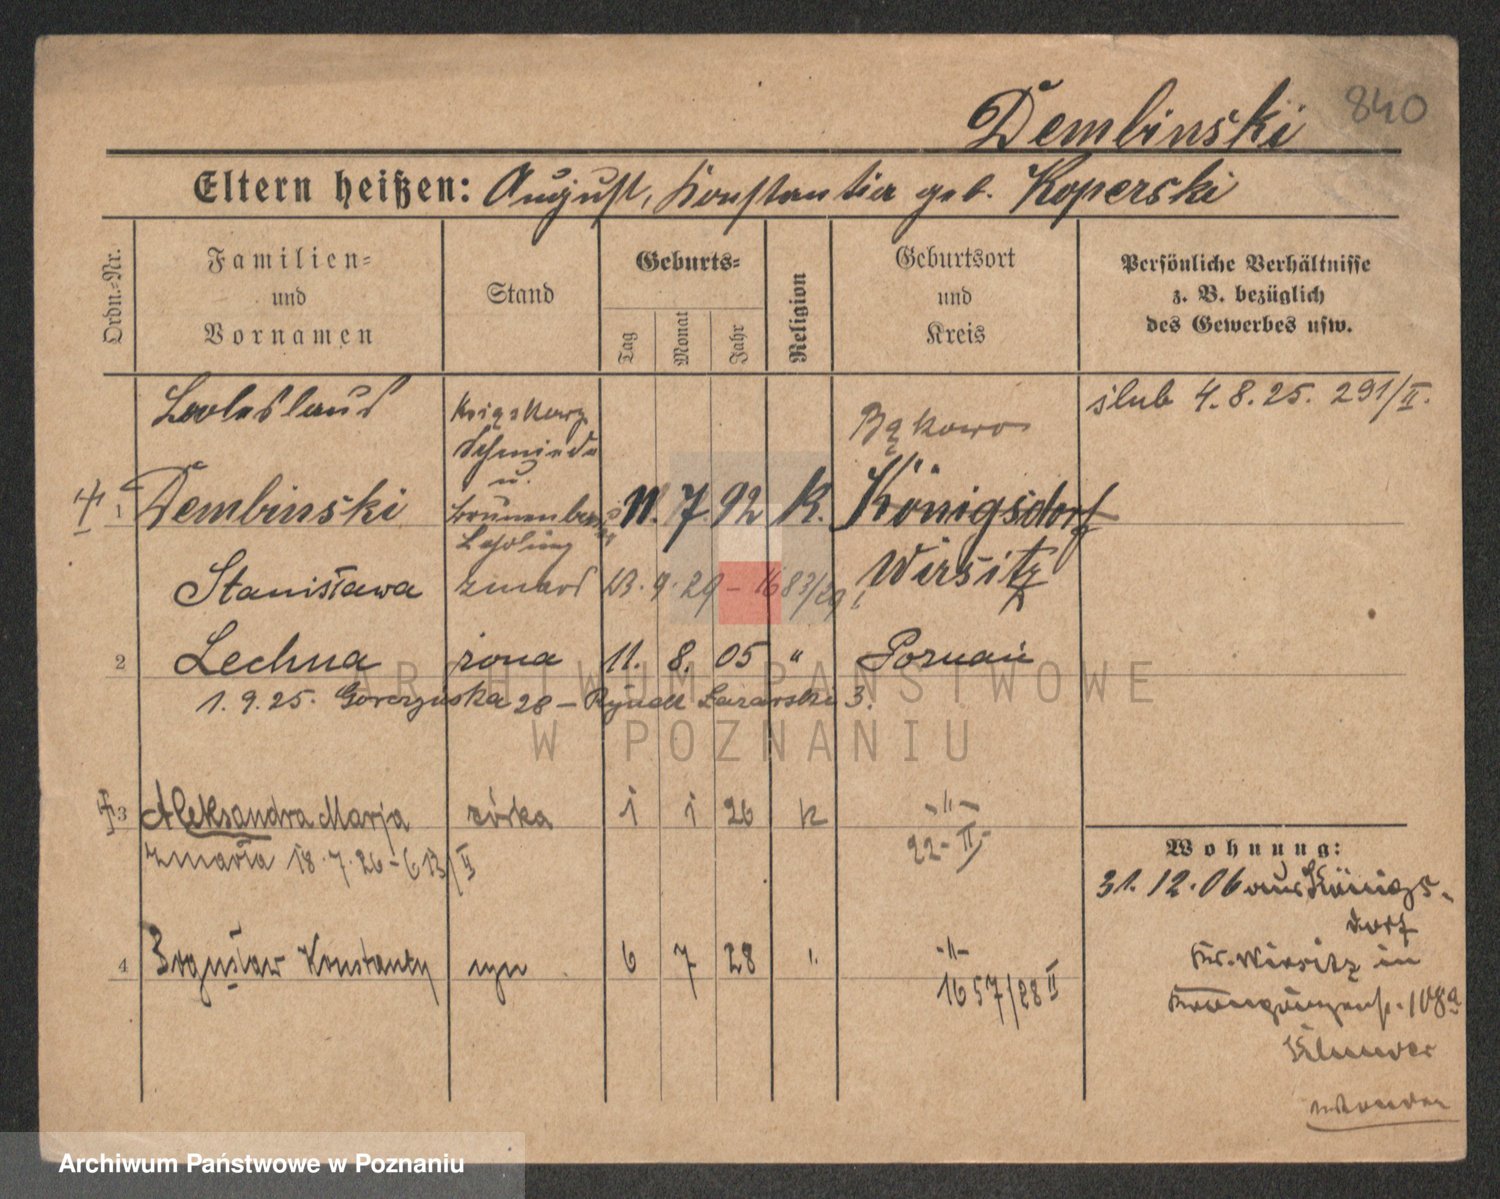 840
Dembinski
Eltern heißen: August, Konstantia geb. Koperski
Ordn.-Nr.
Familien-
und
Vornamen
Stand
Geburts-
Tag
Monat
Jahr
Religion
Geburtsort
und
Kreis
Persönliche Verhältnisse
z. B. bezüglich
des Gewerbes usw.
Boleslaus
ślub 4.8.25. 291/II.
Bąkowo
Schmiede
u.
1 Dembinski 11. 7. 92 K. Königsdorf
Wirsitz
Stanisława 23. 9. 29 - 1683/29
2 Lechna żona 11. 8. 05 " Poznań
1.9.25. Górczyńska 28 - Rynek Łazarski 3.
3 Aleksandra Marja córka 1 1 26 k -"-
22-II
zmarła 18.7.26 - 613/II
4 Bogusław Konstanty syn 6 7 28 -"-
1657/28 II
Wohnung:
31.12.06 aus Königs-
dorf
Kr. Wirsitz in
108a
ARCHIWUM PAŃSTWOWE
W POZNANIU
Archiwum Państwowe w Poznaniu